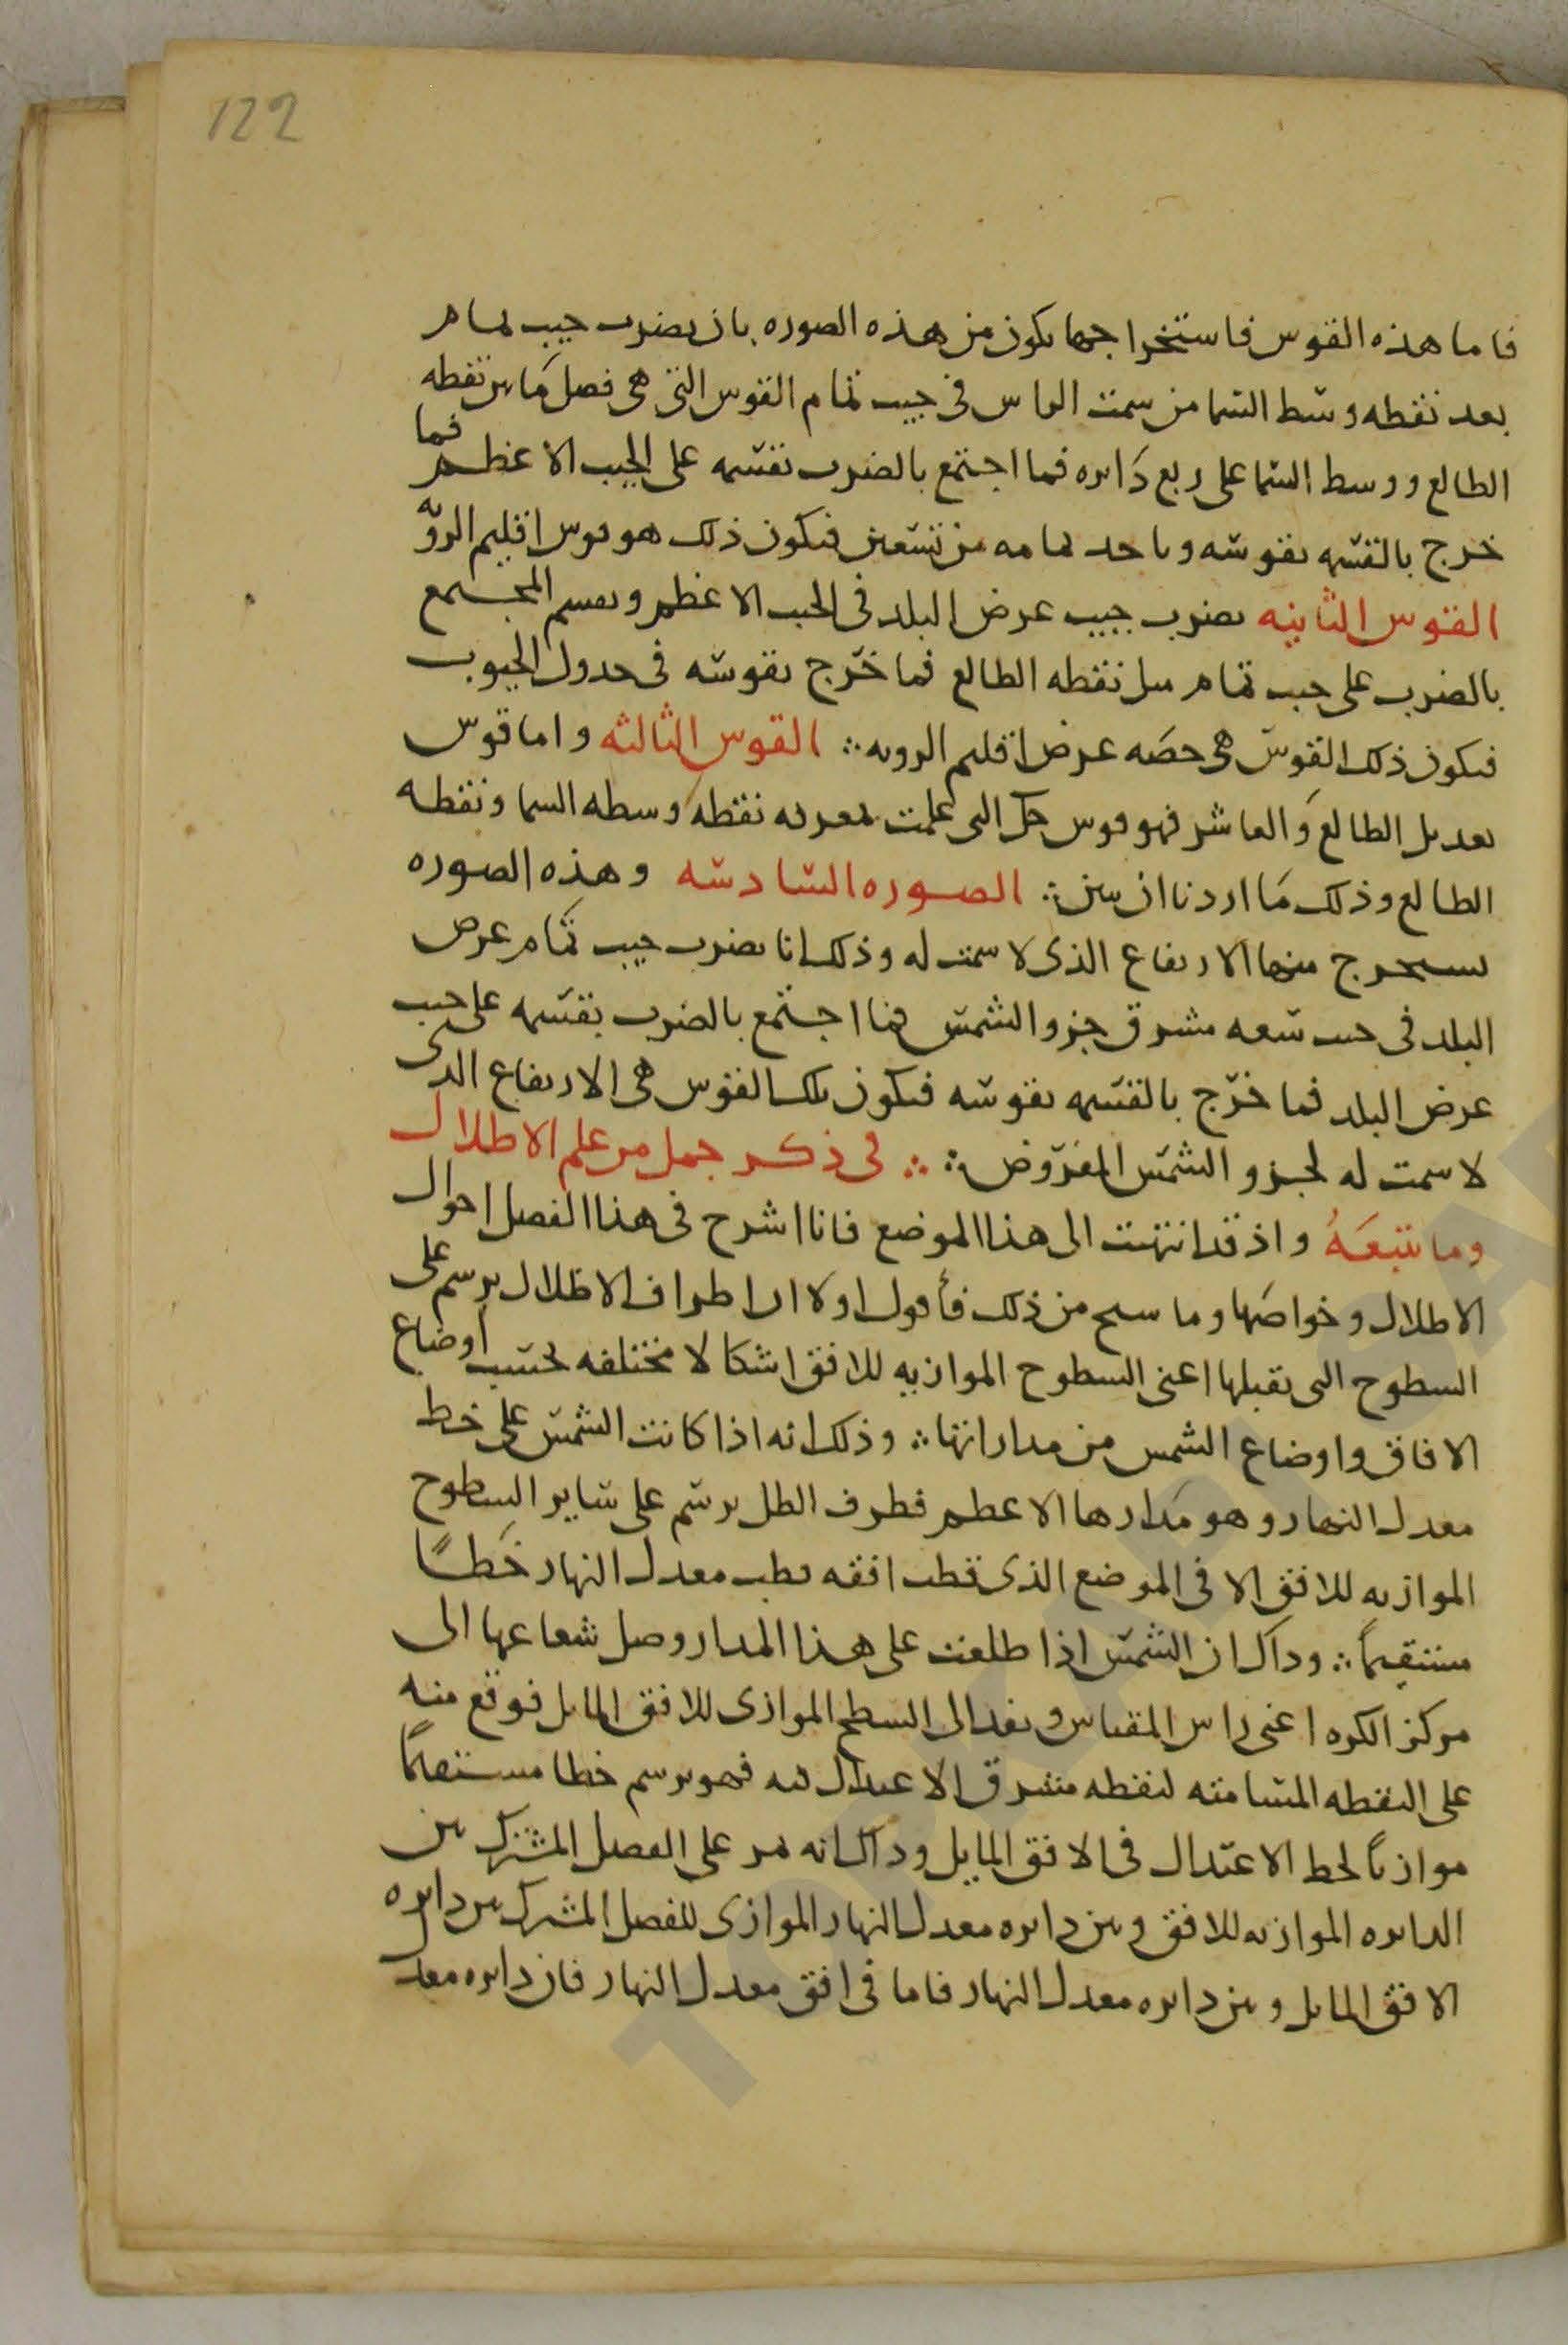 122
فاما هذه القوس فاستخراجها يكون من هذه الصوره بان يضرب جيب تمام
بعد نقطه وسط السما من سمت الراس فى جيب تمام القوس التى هى فصل ما بين نقطه
الطالع ووسط السما على ربع دايره فما اجتمع بالضرب نقسمه على الجيب الاعظم فما
خرج بالقسمه نقوسه وناخذ تمامه من تسعين فيكون ذلك هو قوس اقليم الرويه
القوس الثانيه يضرب جيب عرض البلد فى الجيب الاعظم ونقسم المجتمع
بالضرب على جيب تمام ميل نقطه الطالع فما خرج نقوسه فى جدول الجيوب
فيكون ذلك القوس هى حصه عرض اقليم الرويه ؞ القوس الثالثه واما قوس
تعديل الطالع والعاشر فهو قوس حل التى علمت بمعرفه نقطه وسطه السما ونقطه
الطالع وذلك ما اردنا ان نبين ؞ الصوره السادسه وهذه الصوره
نستخرج منها الارتفاع الذى لا سمت له وذلك انا نضرب جيب تمام عرض
البلد فى جيب سعه مشرق جزو الشمس فما اجتمع بالضرب نقسمه على جيب
عرض البلد فما خرج بالقسمه نقوسه فيكون تلك القوس هى الارتفاع الذى
لا سمت له لجزو الشمس المفروض ؞ ؞ فى ذكر جمل من علم الاظلال
وما يتبعه واذ قد انتهيت الى هذا الموضع فانا اشرح فى هذا الفصل احوال
الاظلال وخواصها وما من ذلك فأقول اولا ان اطراف الاظلال يرسم على
السطوح التى تقبلها اعنى السطوح الموازيه للافق اشكالا مختلفه بحسب اوضاع
الافاق واوضاع الشمس من مداراتها ؞ وذلك انه اذا كانت الشمس على خط
معدل النهار وهو مدارها الاعظم فطرف الظل يرسم على ساير السطوح
الموازيه للافق الا فى الموضع الذى قطب افقه قطب معدل النهار خطًا
مستقيمًا ؞ وذاك ان الشمس اذا طلعت على هذا المدار وصل شعاعها الى
مركز الكوه اعنى راس المقياس ونفد الى السطح الموازى للافق المايل فوقع منه
على النقطه المسامته لنقطه مشرق الاعتدال فيه فهو يرسم خطا مستقيمًا
موازيًا لخط الاعتدال فى الافق المايل وذاك انه يمر على الفصل المشترك بين
الدايره الموازيه للافق وبين دايره معدل النهار الموازى للفصل المشترك بين دايره
الافق المايل وبين دايره معدل النهار فاما فى افق معدل النهار فان دايره معدل